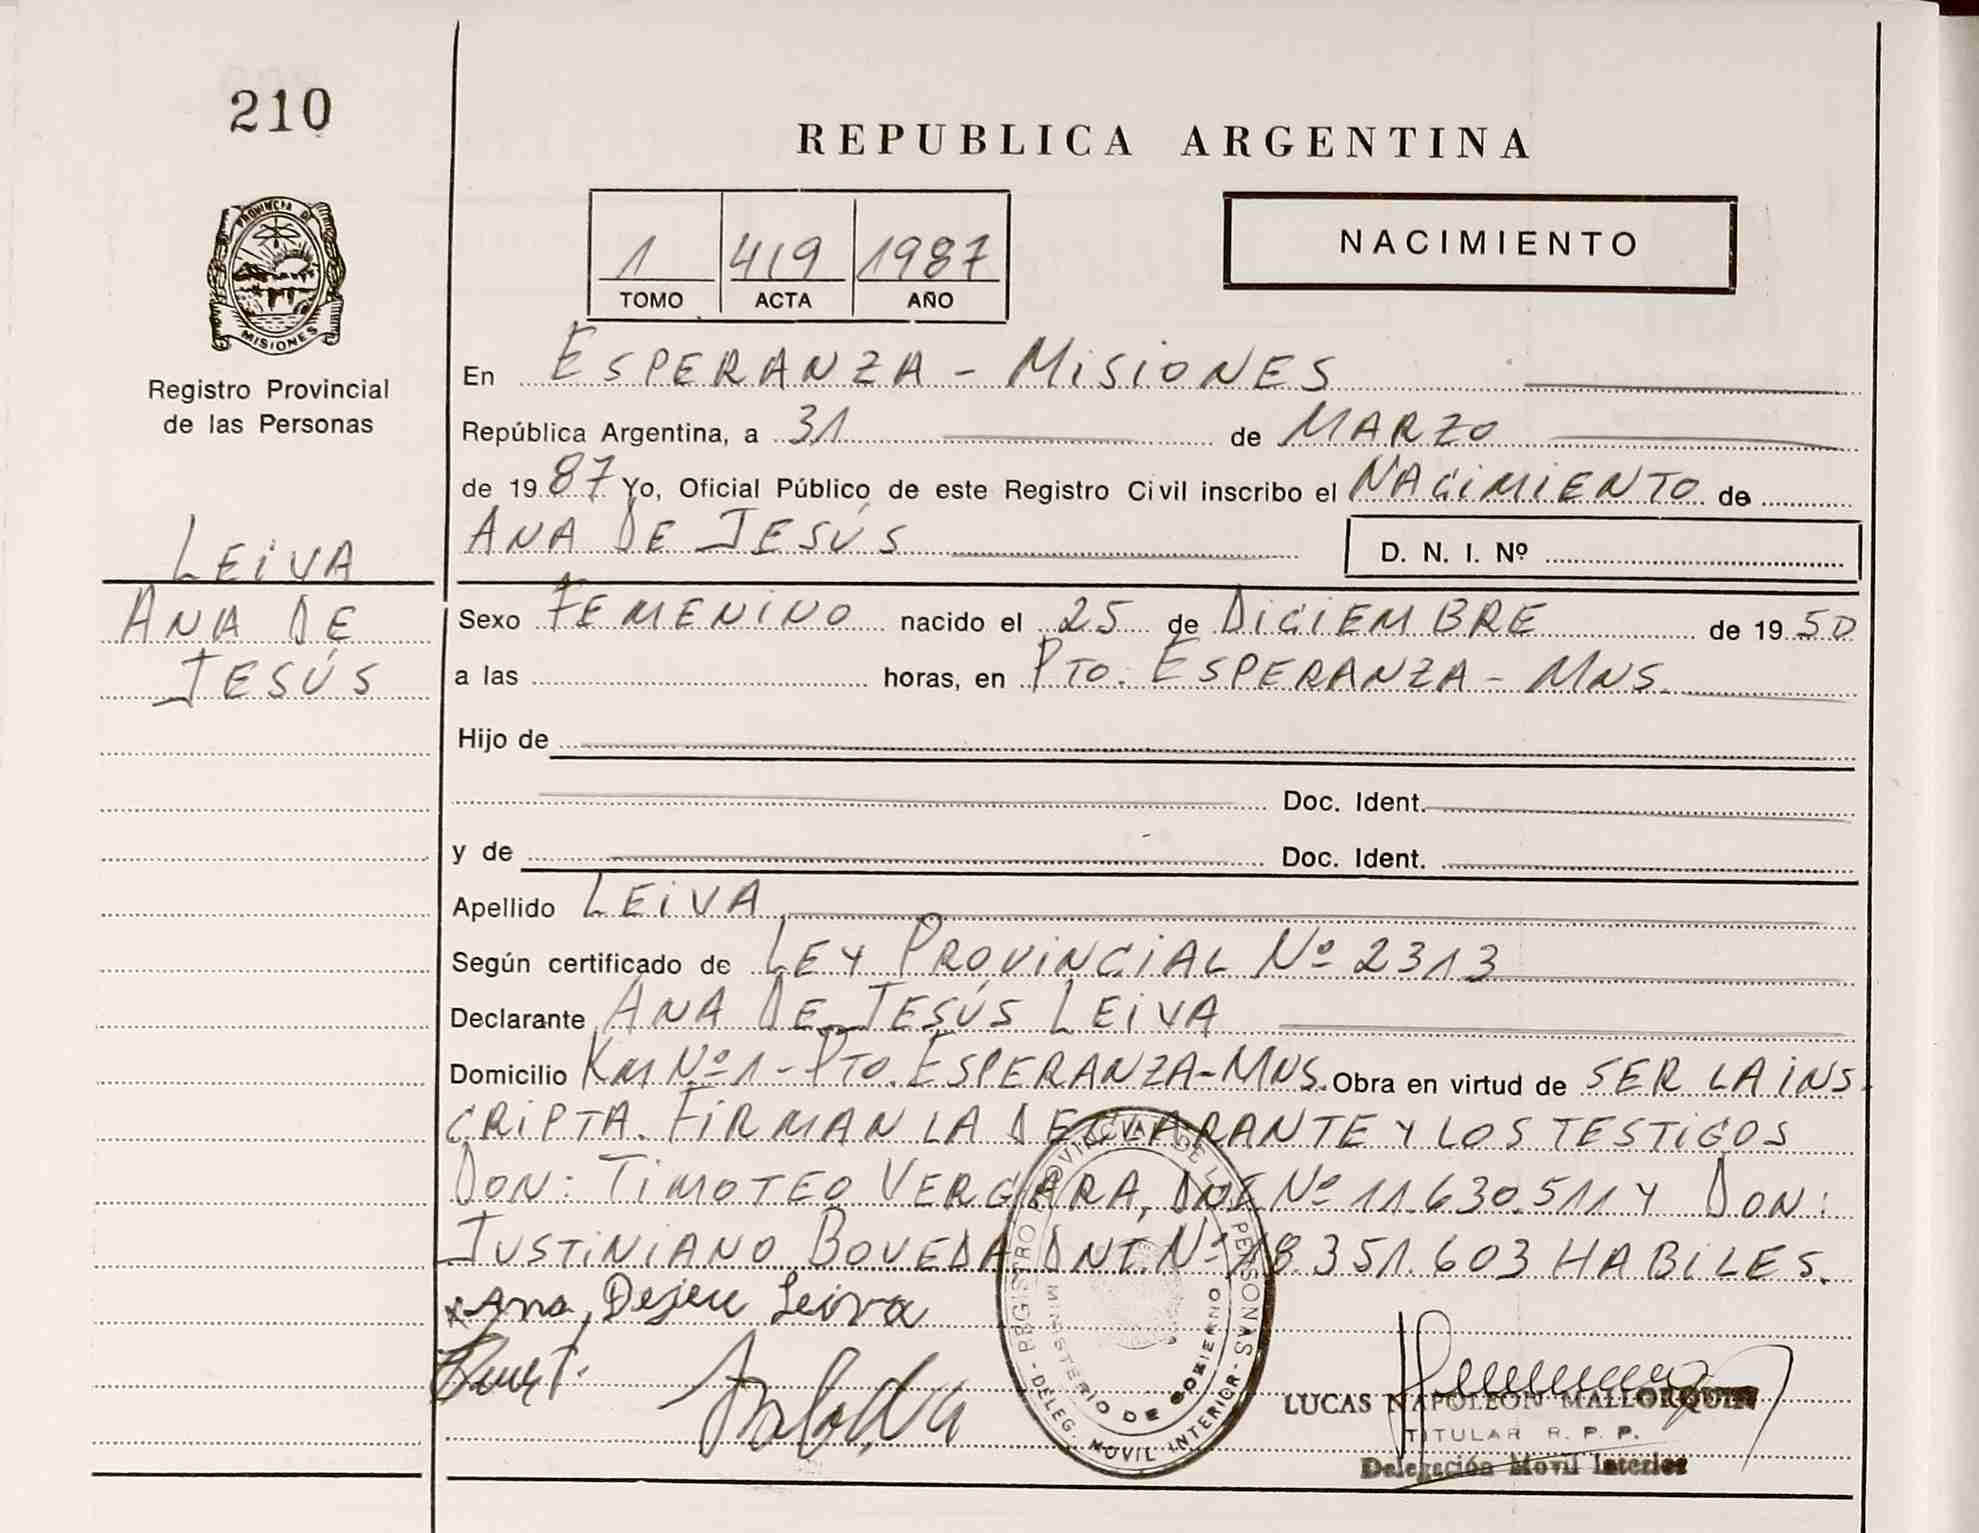 210
REPUBLICA ARGENTINA
PROVINCIA DE
MISIONES
Registro Provincial
de las Personas
1 419 1987
TOMO ACTA AÑO
NACIMIENTO
En ESPERANZA - MISIONES
República Argentina, a 31 de MARZO
de 1987 Yo, Oficial Público de este Registro Civil inscribo el NACIMIENTO de
ANA DE JESÚS
D. N. I. Nº
LEIVA
ANA DE
JESÚS
Sexo FEMENINO nacido el 25 de DICIEMBRE de 1950
a las horas, en PTO. ESPERANZA - MNS.
Hijo de
Doc. Ident.
y de Doc. Ident.
Apellido LEIVA
Según certificado de LEY PROVINCIAL Nº 2313
Declarante ANA DE JESÚS LEIVA
Domicilio KM Nº 1 - PTO. ESPERANZA - MNS. Obra en virtud de SER LA INS
CRIPTA. FIRMAN LA DECLARANTE Y LOS TESTIGOS
DON: TIMOTEO VERGARA, DNI. Nº 11.630.511 Y DON:
JUSTINIANO BOVEDA DNI. Nº 18.351.603 HABILES.
x Ana, Dejeu Leiva
REGISTRO PROVINCIAL DE LAS PERSONAS
MINISTERIO DE GOBIERNO
DELEG. MOVIL INTERIOR
LUCAS NAPOLEON MALLORQUIN
TITULAR R. P. P.
Delegación Movil Interior